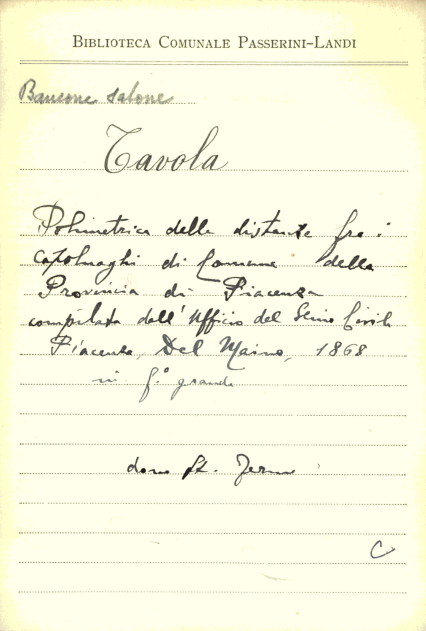 BIBLIOTECA COMUNALE PASSERINI-LANDI
Bancone salone
Tavola
Polimetrica delle distanze fra i
capoluoghi di Comune della
Provincia di Piacenza
compilata dall'Ufficio del Genio Civile
Piacenza, Del Maino, 1868
in f.º grande
dono
C